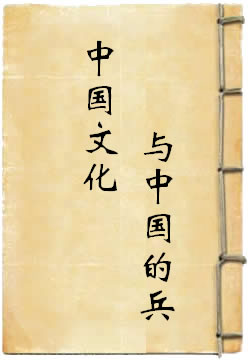 中国文化
与中国的兵